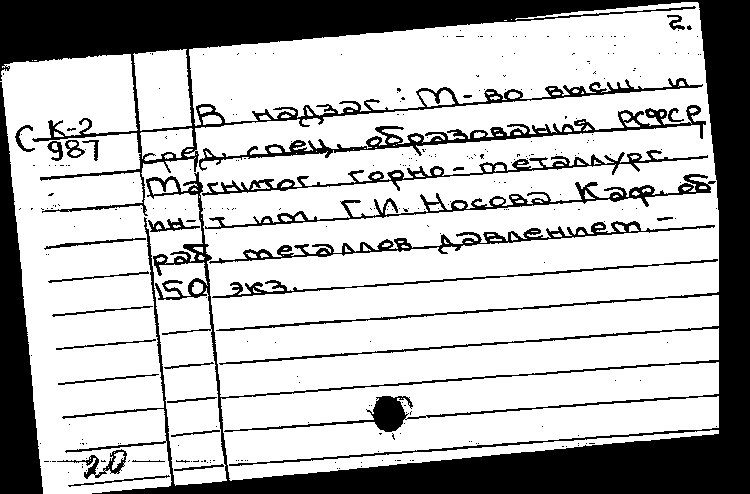 2.
С К-2
987
В надзаг.: М-во высш. и
сред. спец. образования РСФСР,
Магнитог. горно-металлург.
ин-т им. Г.И. Носова. Каф. об-
раб. металлов давлением.-
150 экз.
20